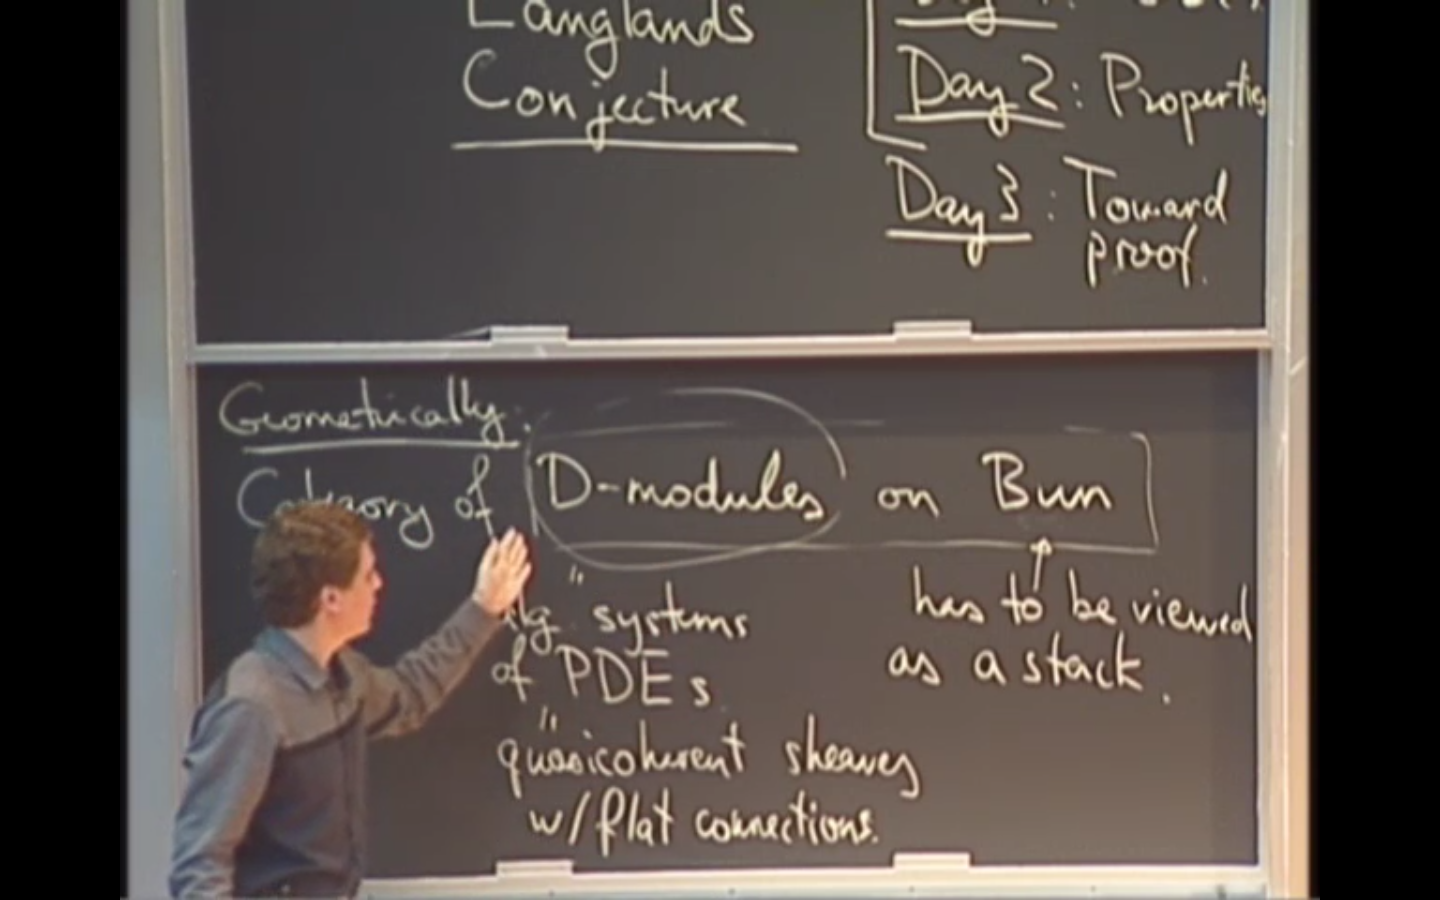 Langlands
Conjecture
Day 2: Properties
Day 3: Toward
proof.
Geometrically:
Category of D-modules on Bun
"
Alg systems
of PDEs
"
quasicoherent sheaves
w/ flat connections.
has to be viewed
as a stack.